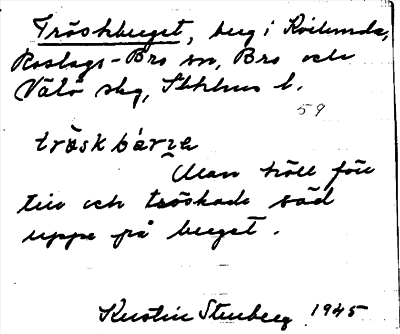 Tröskberget, berg i Roslunda,
Roslags-Bro sn, Bro och
Vätö skg, Sthlms l.
59
tröskbärje
Man höll förr
till och tröskade säd
uppe på berget.
Kerstin Stenberg 1945